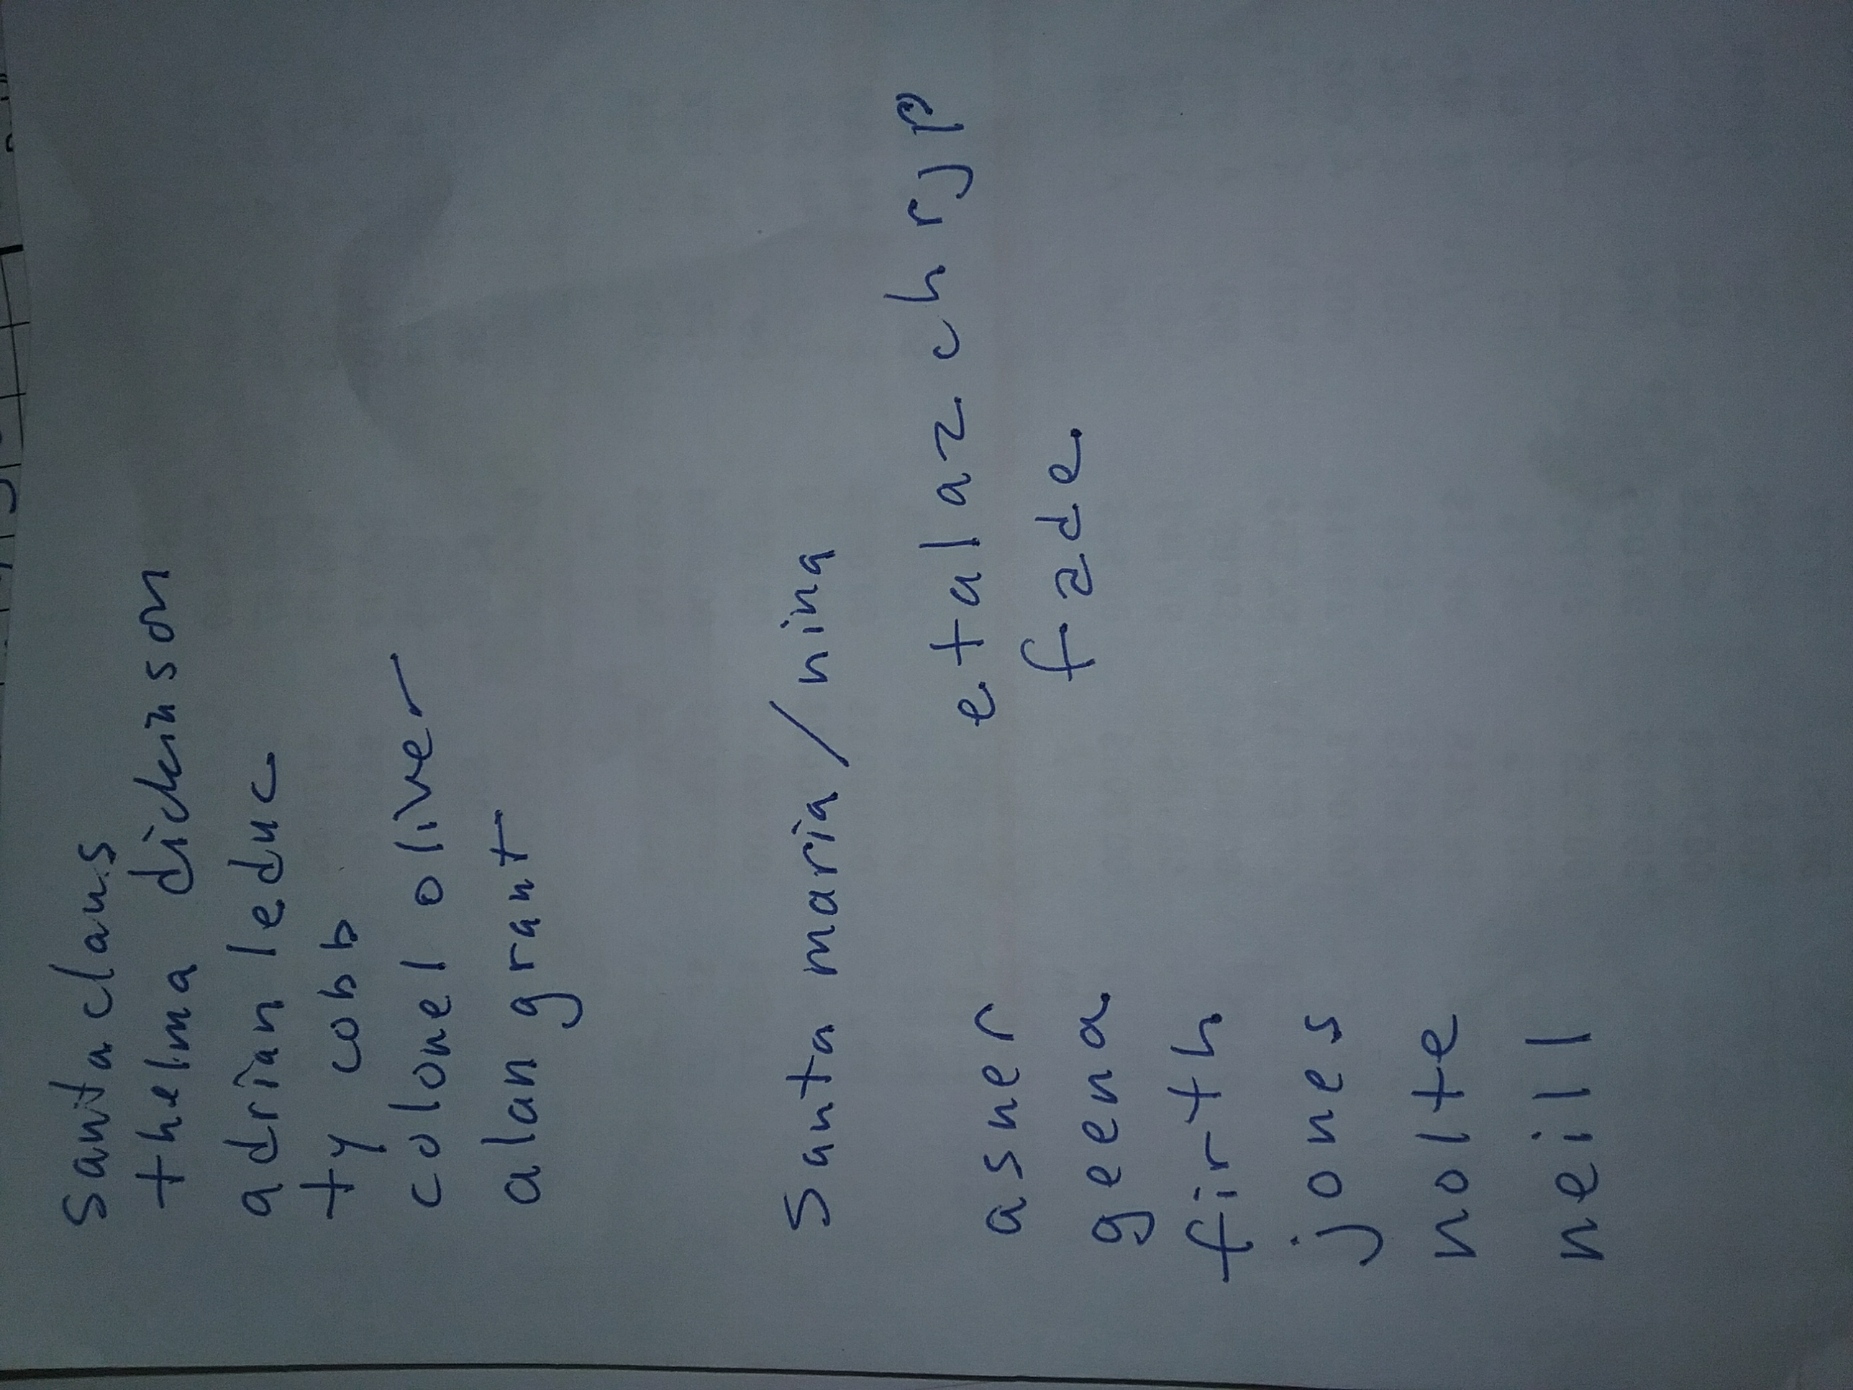 santa claus
thelma dickinson
adrian leduc
ty cobb
colonel oliver
alan grant
Santa maria / nina
etalaz chrjp
fade
asner
geena
firth
jones
nolte
neill